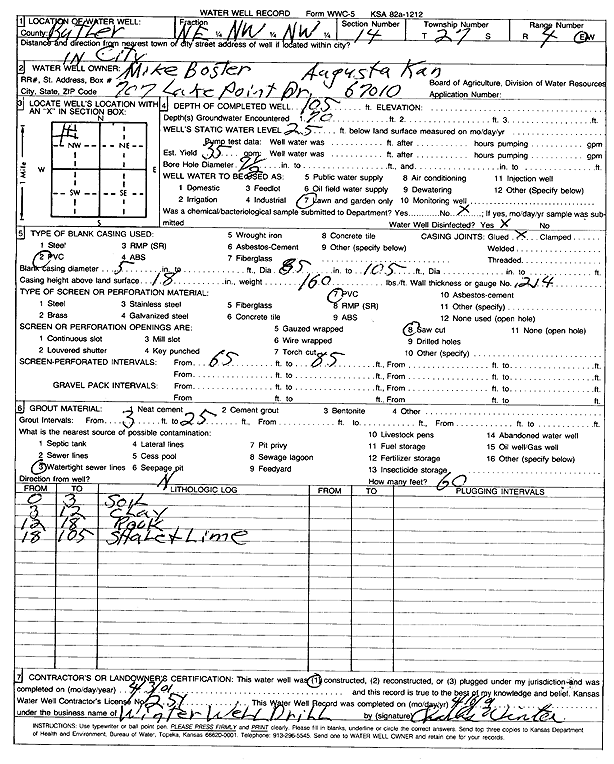 WATER WELL RECORD Form WWC-5 KSA 82a-1212
1 LOCATION OF WATER WELL: Fraction Section Number Township Number Range Number
County: Butler NE ¼ NW ¼ NW ¼ 14 T 27 S R 4 E/W
Distance and direction from nearest town or city street address of well if located within city?
In City
2 WATER WELL OWNER: Mike Boster Augusta Kan
RR#, St. Address, Box # 707 Lake Point Dr. 67010 Board of Agriculture, Division of Water Resources
City, State, ZIP Code Application Number:
3 LOCATE WELL'S LOCATION WITH AN "X" IN SECTION BOX:
N
NW NE
W E
SW SE
S
1 Mile
4 DEPTH OF COMPLETED WELL 105 ft. ELEVATION:
Depth(s) Groundwater Encountered 1. 70 ft. 2. ft. 3. ft.
WELL'S STATIC WATER LEVEL 25 ft. below land surface measured on mo/day/yr
Pump test data: Well water was ft. after hours pumping gpm
Est. Yield 35 gpm: Well water was ft. after hours pumping gpm
Bore Hole Diameter in. to ft., and in. to ft.
WELL WATER TO BE USED AS: 5 Public water supply 8 Air conditioning 11 Injection well
1 Domestic 3 Feedlot 6 Oil field water supply 9 Dewatering 12 Other (Specify below)
2 Irrigation 4 Industrial 7 Lawn and garden only 10 Monitoring well
Was a chemical/bacteriological sample submitted to Department? Yes No X; If yes, mo/day/yr sample was submitted
Water Well Disinfected? Yes X No
5 TYPE OF BLANK CASING USED: 5 Wrought iron 8 Concrete tile CASING JOINTS: Glued X Clamped
1 Steel 3 RMP (SR) 6 Asbestos-Cement 9 Other (specify below) Welded
2 PVC 4 ABS 7 Fiberglass Threaded
Blank casing diameter 5 in. to ft., Dia 85 in. to 105 ft., Dia in. to ft.
Casing height above land surface 18 in., weight 160 lbs./ft. Wall thickness or gauge No. 214
TYPE OF SCREEN OR PERFORATION MATERIAL: 7 PVC 10 Asbestos-cement
1 Steel 3 Stainless steel 5 Fiberglass 8 RMP (SR) 11 Other (specify)
2 Brass 4 Galvanized steel 6 Concrete tile 9 ABS 12 None used (open hole)
SCREEN OR PERFORATION OPENINGS ARE: 5 Gauzed wrapped 8 Saw cut 11 None (open hole)
1 Continuous slot 3 Mill slot 6 Wire wrapped 9 Drilled holes
2 Louvered shutter 4 Key punched 7 Torch cut 10 Other (specify)
SCREEN-PERFORATED INTERVALS: From 65 ft. to 85 ft., From ft. to ft.
From ft. to ft., From ft. to ft.
GRAVEL PACK INTERVALS: From ft. to ft., From ft. to ft.
From ft. to ft., From ft. to ft.
6 GROUT MATERIAL: 1 Neat cement 2 Cement grout 3 Bentonite 4 Other
Grout Intervals: From 3 ft. to 25 ft., From ft. to ft., From ft. to ft.
What is the nearest source of possible contamination: 10 Livestock pens 14 Abandoned water well
1 Septic tank 4 Lateral lines 7 Pit privy 11 Fuel storage 15 Oil well/Gas well
2 Sewer lines 5 Cess pool 8 Sewage lagoon 12 Fertilizer storage 16 Other (specify below)
3 Watertight sewer lines 6 Seepage pit 9 Feedyard 13 Insecticide storage
Direction from well? N How many feet? 60
FROM TO LITHOLOGIC LOG FROM TO PLUGGING INTERVALS
0 3 Soil
3 12 Clay
12 18 Rock
18 105 Shale & Lime
7 CONTRACTOR'S OR LANDOWNER'S CERTIFICATION: This water well was (1) constructed, (2) reconstructed, or (3) plugged under my jurisdiction and was
completed on (mo/day/year) 4/3/01 and this record is true to the best of my knowledge and belief. Kansas
Water Well Contractor's License No. 251 This Water Well Record was completed on (mo/day/yr)
under the business name of Winter Well Drill by (signature) Charles Winter
INSTRUCTIONS: Use typewriter or ball point pen. PLEASE PRESS FIRMLY and PRINT clearly. Please fill in blanks, underline or circle the correct answers. Send top three copies to Kansas Department
of Health and Environment, Bureau of Water, Topeka, Kansas 66620-0001. Telephone: 913-296-5545. Send one to WATER WELL OWNER and retain one for your records.